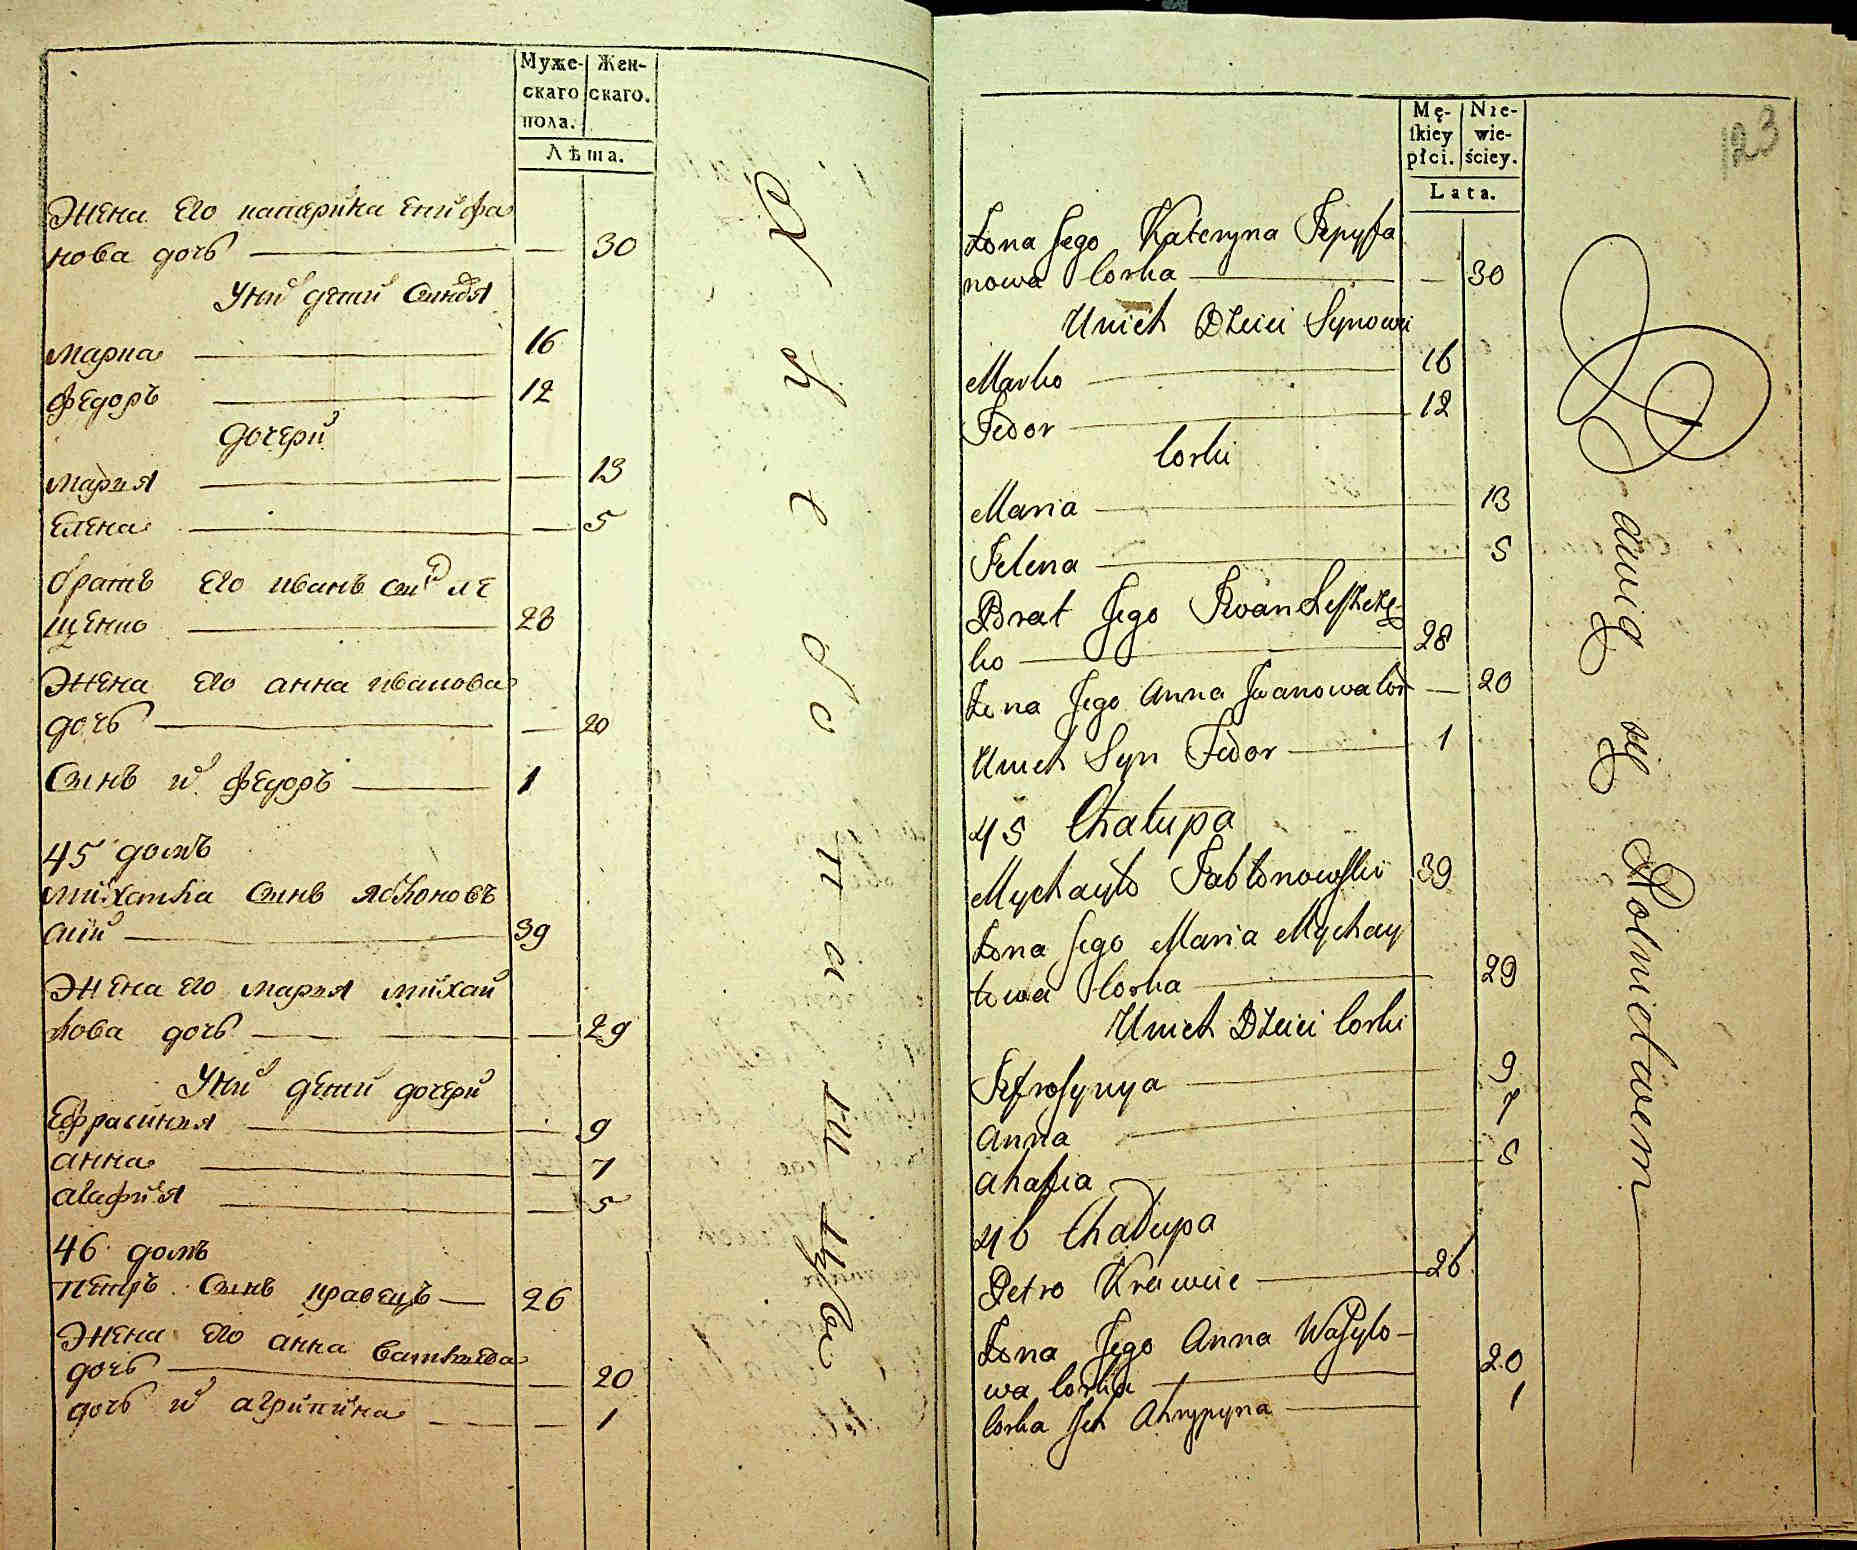 Муже-
скаго
пола.
Жен-
скаго.
Лѣта.
Жена Его катерина Епифа
нова дочь — 30
У ни дети Сины
марка 16
федоръ 12
дочери
мария — 13
Елена — 5
братъ Его иванъ ле
щенко 28
Жена Его анна иванова
дочь — 20
Синъ и федоръ 1
45 домъ
михаила Синъ яблоновъ
скии 39
Жена Его мария михаи
лова дочь — 29
У ни дети дочери
Ефрасиния — 9
анна — 7
агафия — 5
46 домъ
петръ Синъ кравецъ 26
Жена Его анна василева
дочь — 20
дочь и агрипина — 1
123
Mę-
skiey
płci.
Nie-
wie-
ściey.
Lata.
Żona Jego Kateryna Jepyfa
nowa Corka — 30
U nich Dzieci Synowie
Marko 16
Fedor 12
Corki
Maria 13
Jelena 5
Brat Jego Iwan Leszcze-
ko 28
Żona Jego Anna Iwanowa Cor — 20
U nich Syn Fedor 1
45 Chałupa
Mychayło Jabłonowski 39
Żona Jego Maria Mychay
łowa Corka 29
U nich Dzieci Corki
Jefrosynya 9
Anna 7
Ahafia 5
46 Chałupa
Petro Krawiec 26
Żona Jego Anna Wasylo-
wa Corka 20
Corka Ich Ahrypyna 1
bawią się Rolnictwem